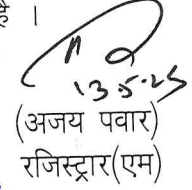 है ।
13.5.25
(अजय पवार)
रजिस्ट्रार(एम)